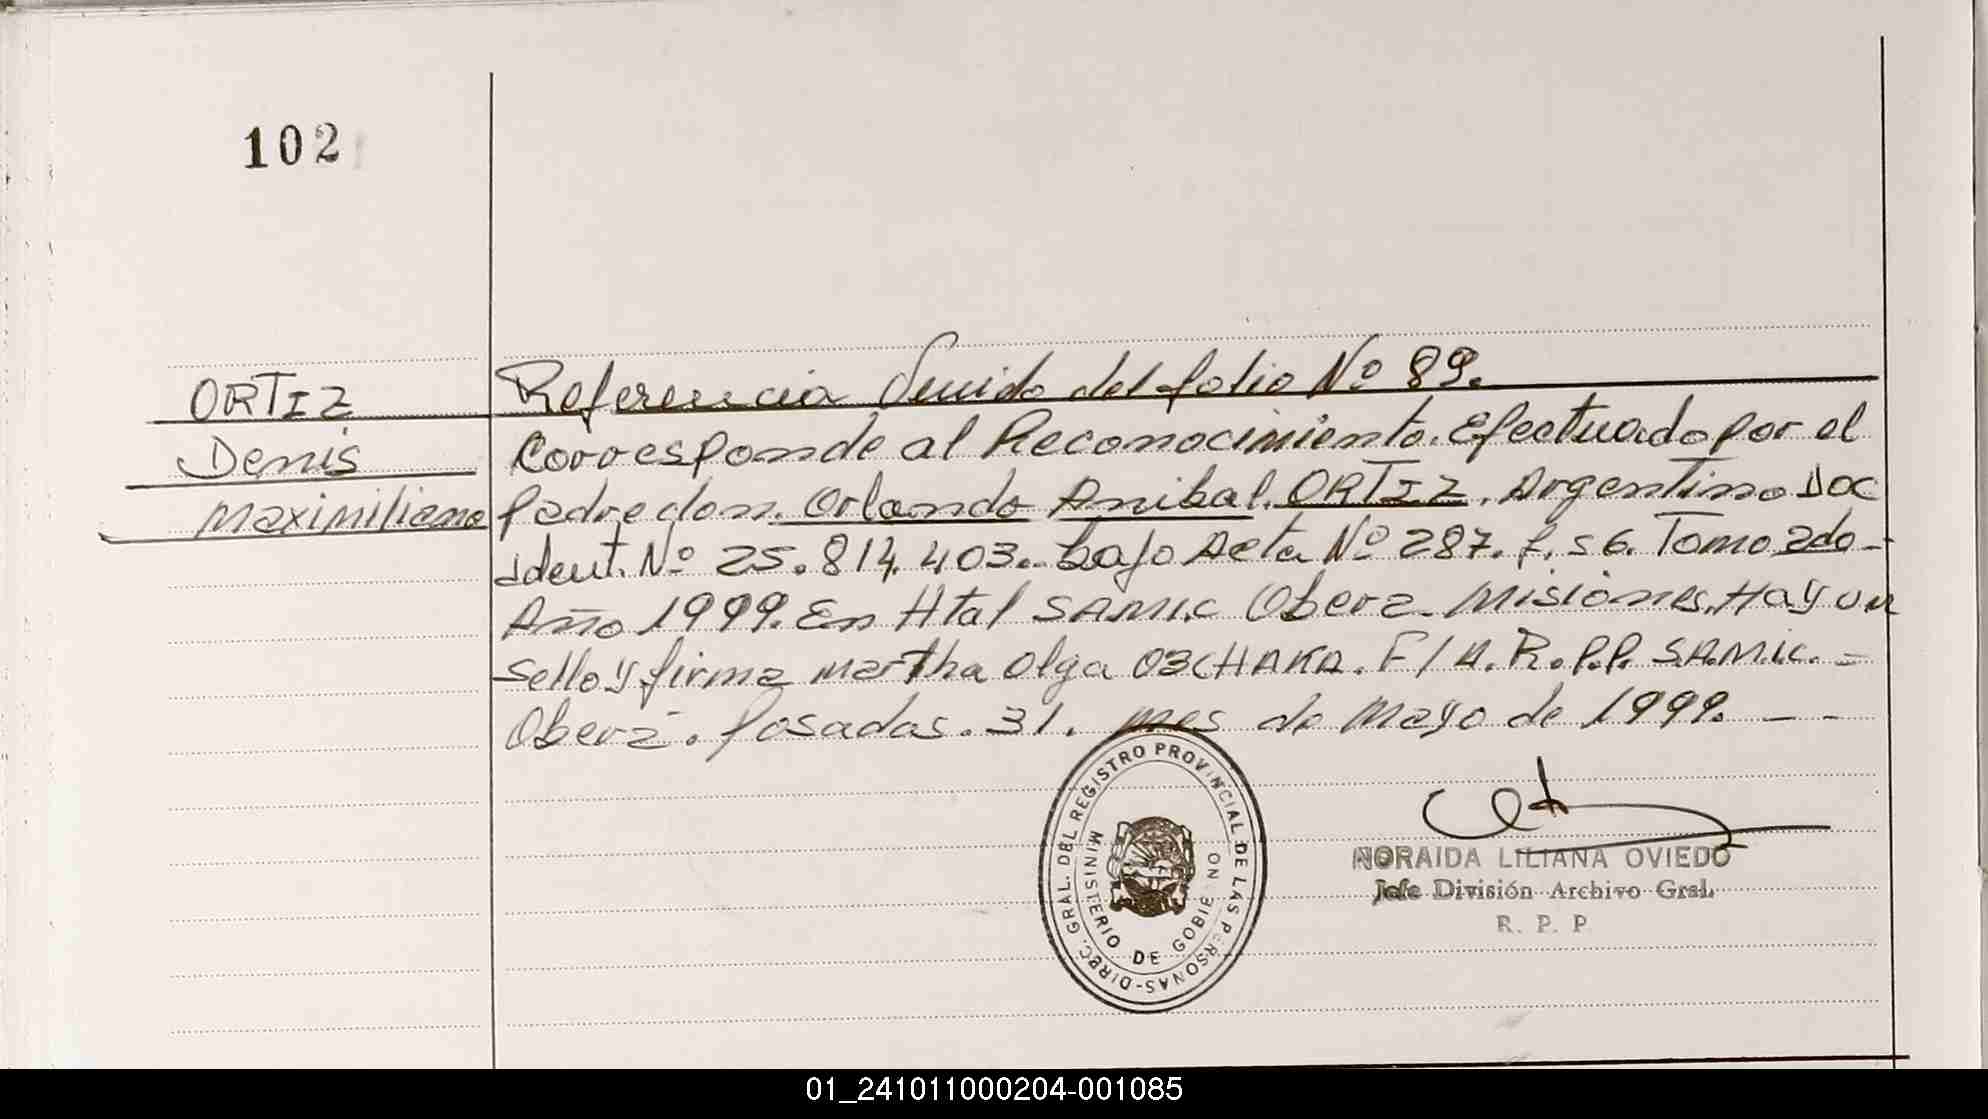 102
ORTIZ
Denis
Maximiliano
Referencia Venido del folio Nº 89.
Corresponde al Reconocimiento. Efectuado por el
Padre don. Orlando Anibal. ORTIZ. Argentino Doc
Ident. Nº 25.814.403. bajo Acta Nº 287. f. 56. Tomo 2do -
Año 1999. En Htal SAMIC Oberá. Misiones. Hay un
Sello y firma Martha Olga OBCHAKA. F/A. R.P.P. SAMIC. =
Oberá. Posadas. 31. mes de Mayo de 1999. - -
DIREC. GRAL. DEL REGISTRO PROVINCIAL DE LAS PERSONAS-
MINISTERIO DE GOBIERNO
NORAIDA LILIANA OVIEDO
Jefe División Archivo Gral.
R. P. P
01_241011000204-001085